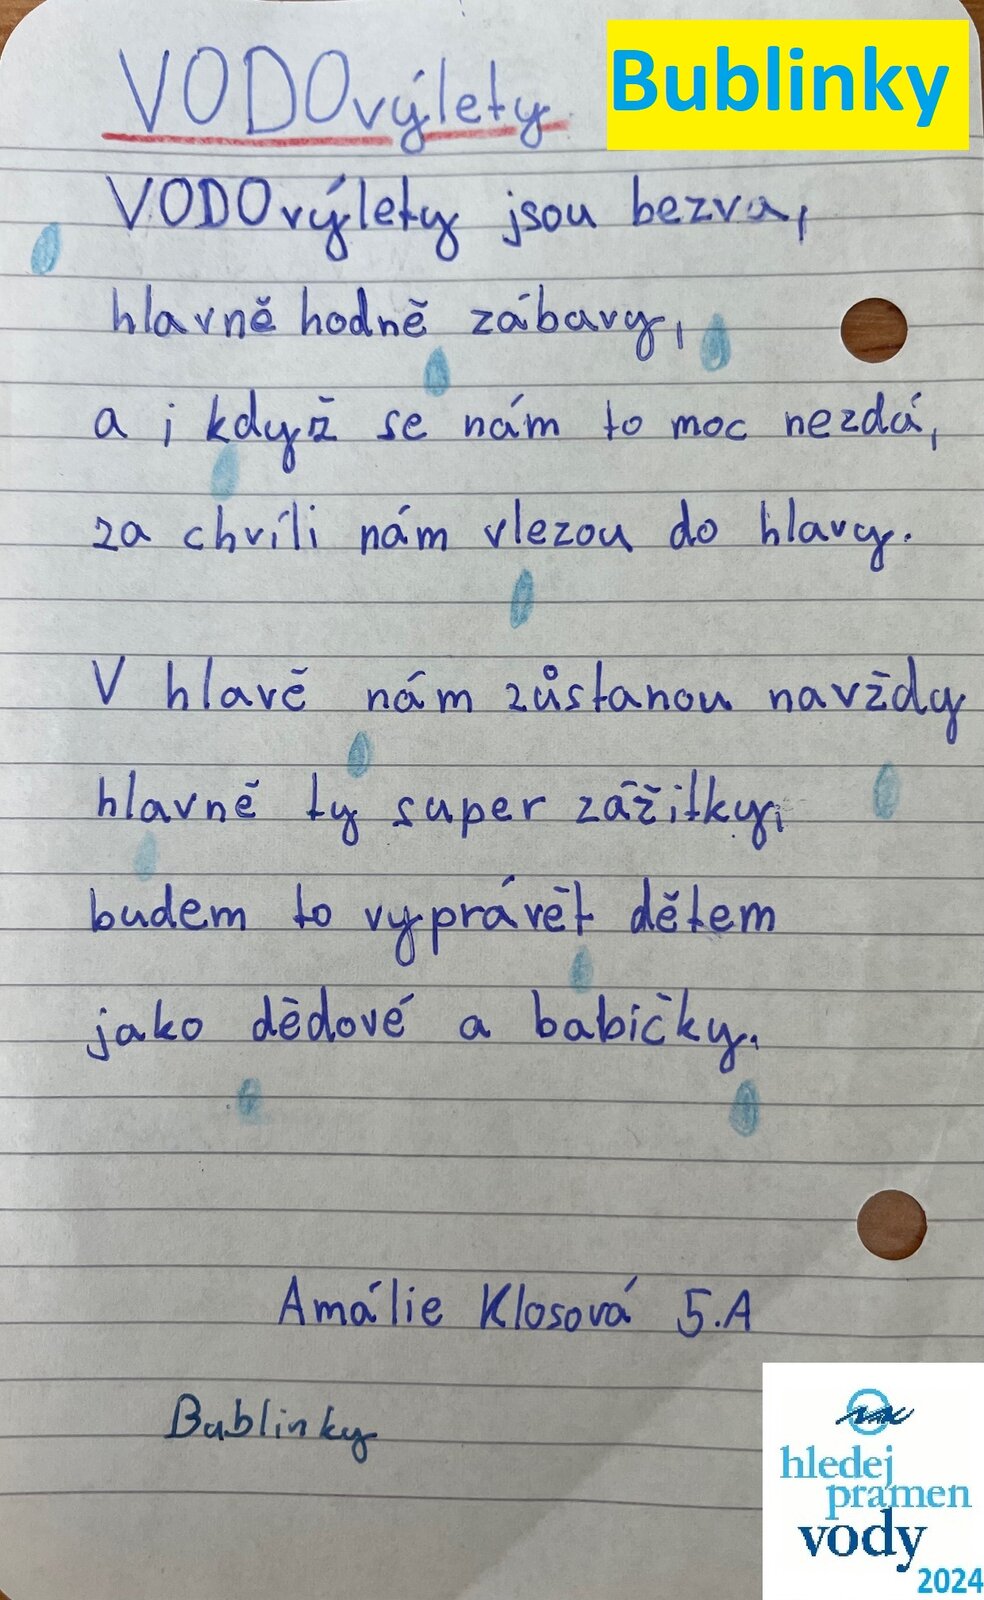 VODOvýlety
Bublinky
VODOvýlety jsou bezva,
hlavně hodně zábavy,
a i když se nám to moc nezdá,
za chvíli nám vlezou do hlavy.
V hlavě nám zůstanou navždy
hlavně ty super zážitky,
budem to vyprávět dětem
jako dědové a babičky.
Amálie Klosová 5.A
Bublinky
hledej
pramen
vody
2024